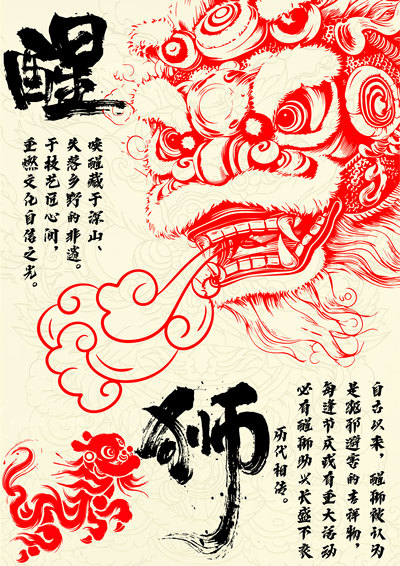 醒
唤醒藏于深山、
失落乡野的非遗。
于技艺匠心间，
重燃文化自信之光。
狮
自古以来，醒狮被认为
是驱邪避害的吉祥物，
每逢节庆或有重大活动
必有醒狮助兴长盛不衰
历代相传。